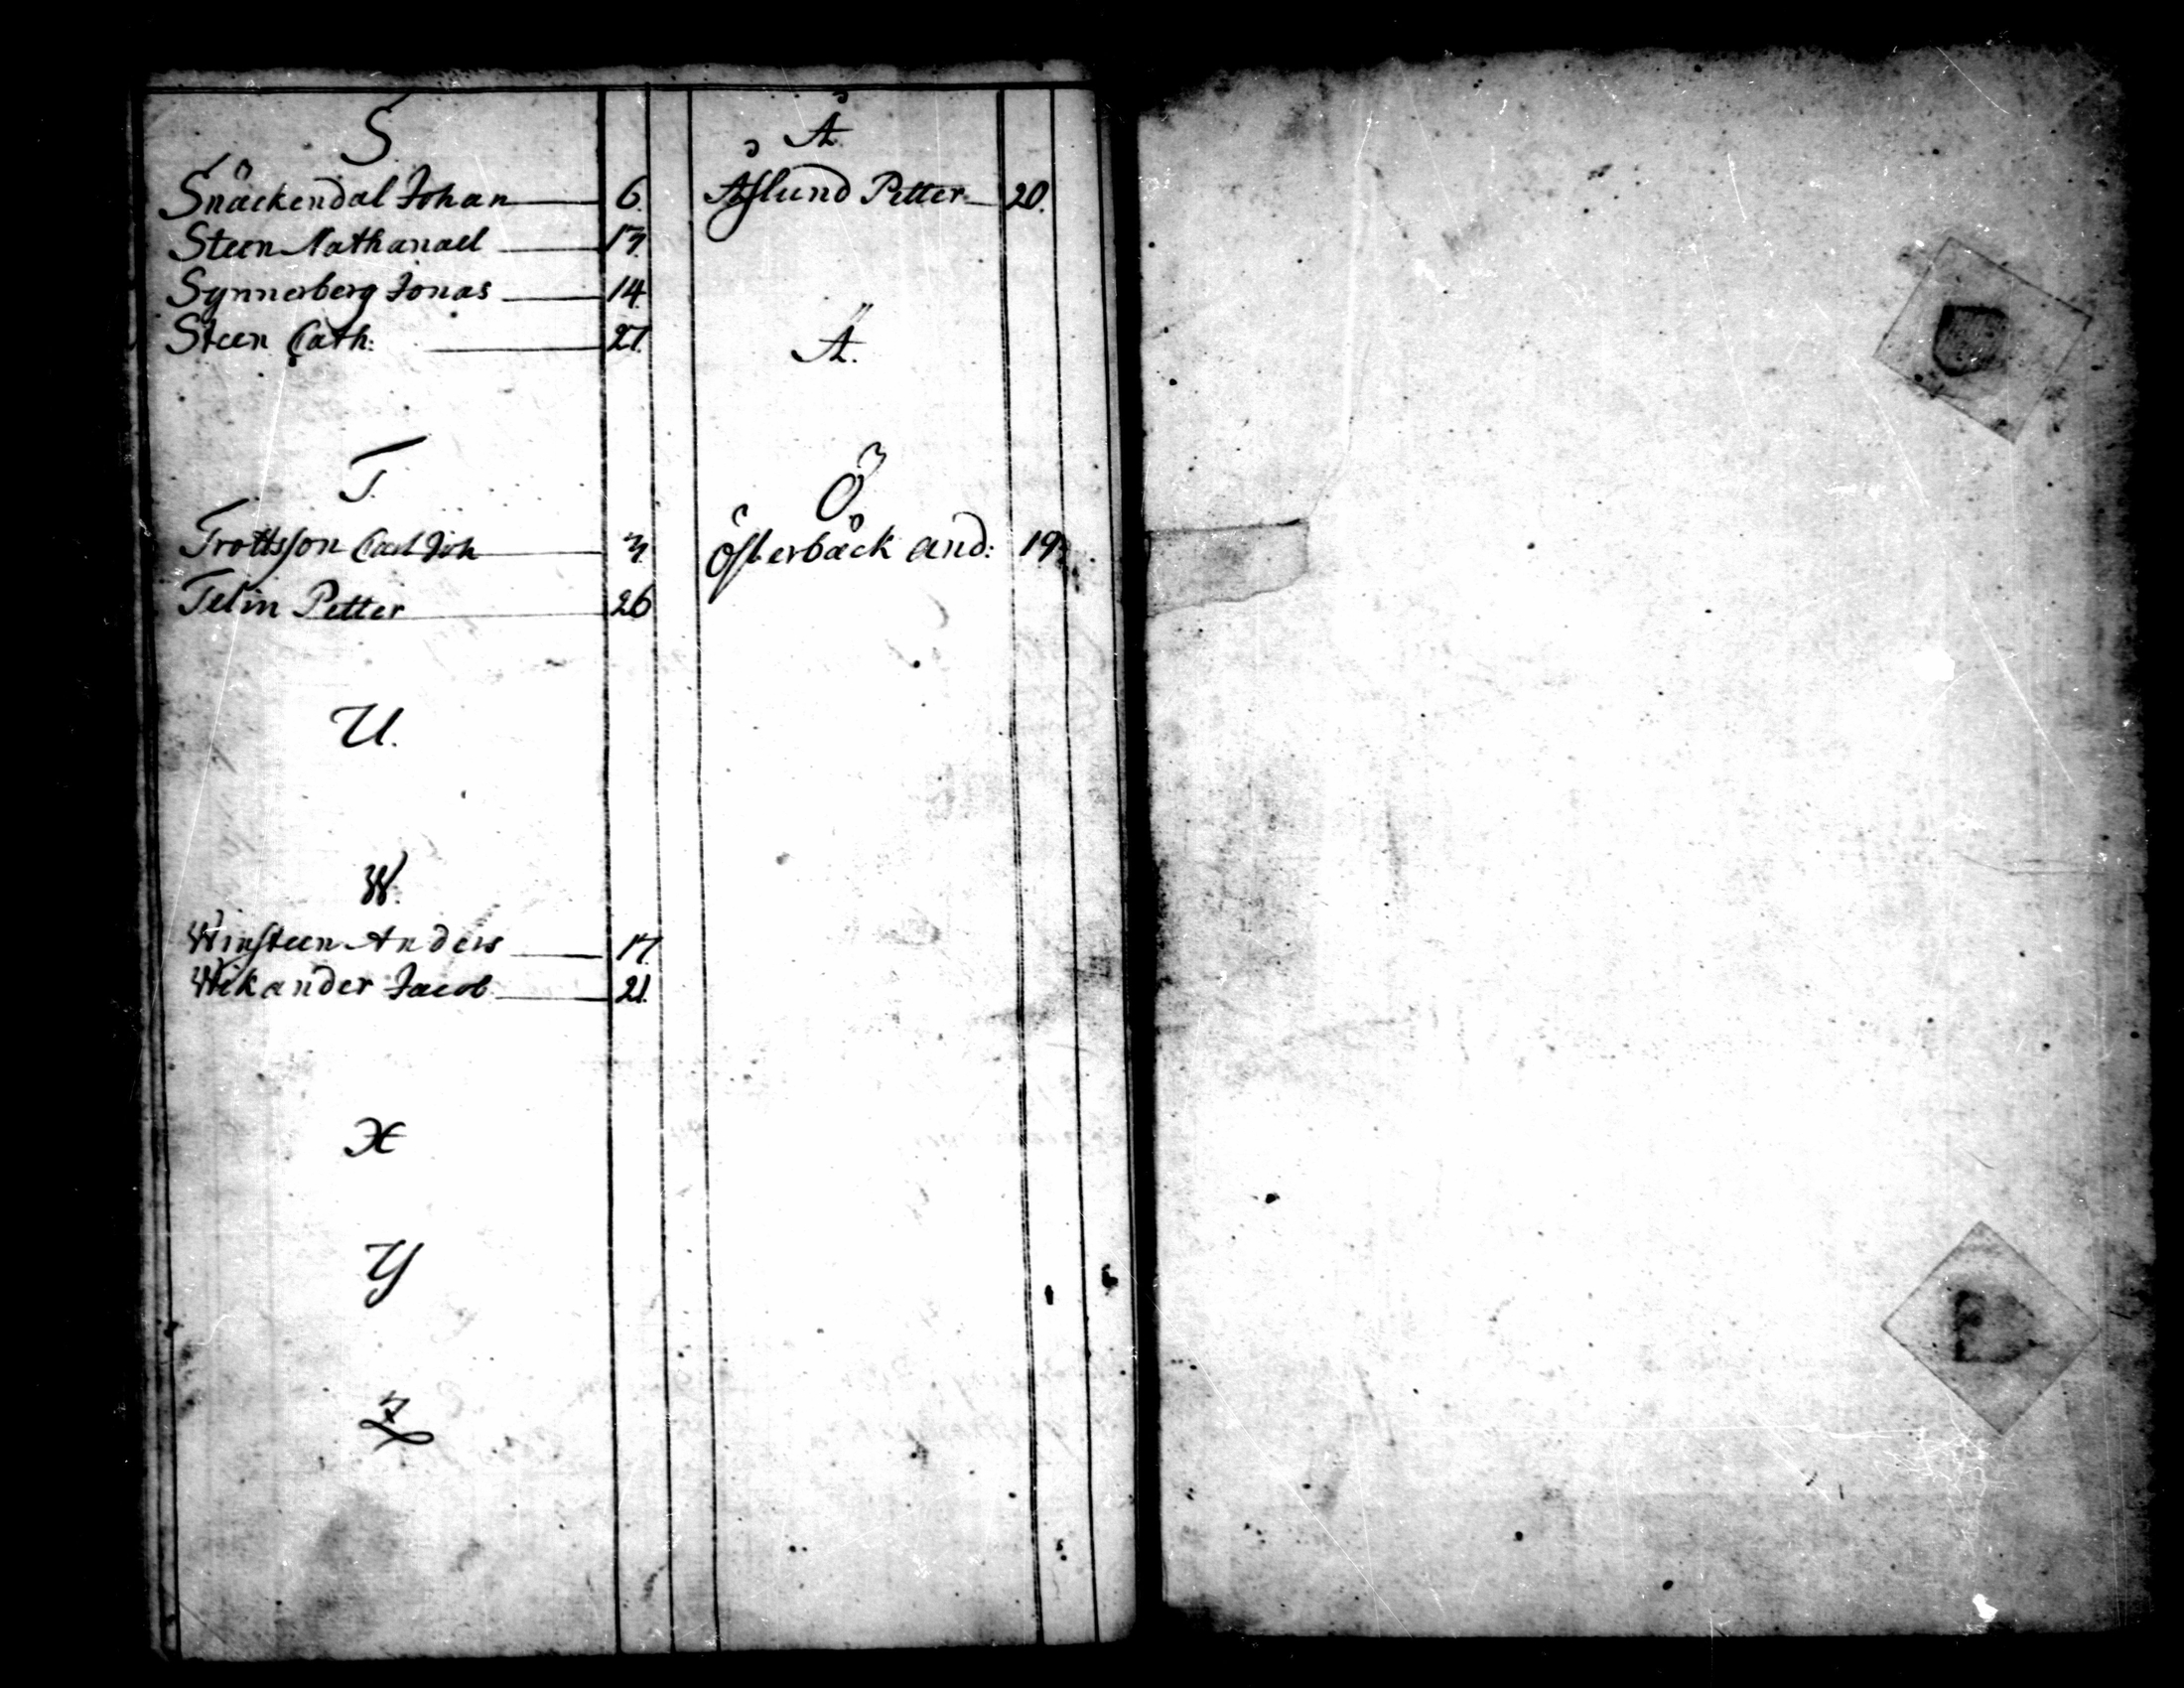 S.
Snäckendal Johan 6.
Steen Nathanael 13.
Synnerberg Jonas 14.
Steen Cath: 27.
T.
Trottsson Carl Joh 3.
Telin Petter 26
U.
W.
Winsteen Anders 17.
Wikander Jacob 21.
X
Y
Z
Å.
Åslund Petter 20.
Ä.
Ö
Österbäck And: 19